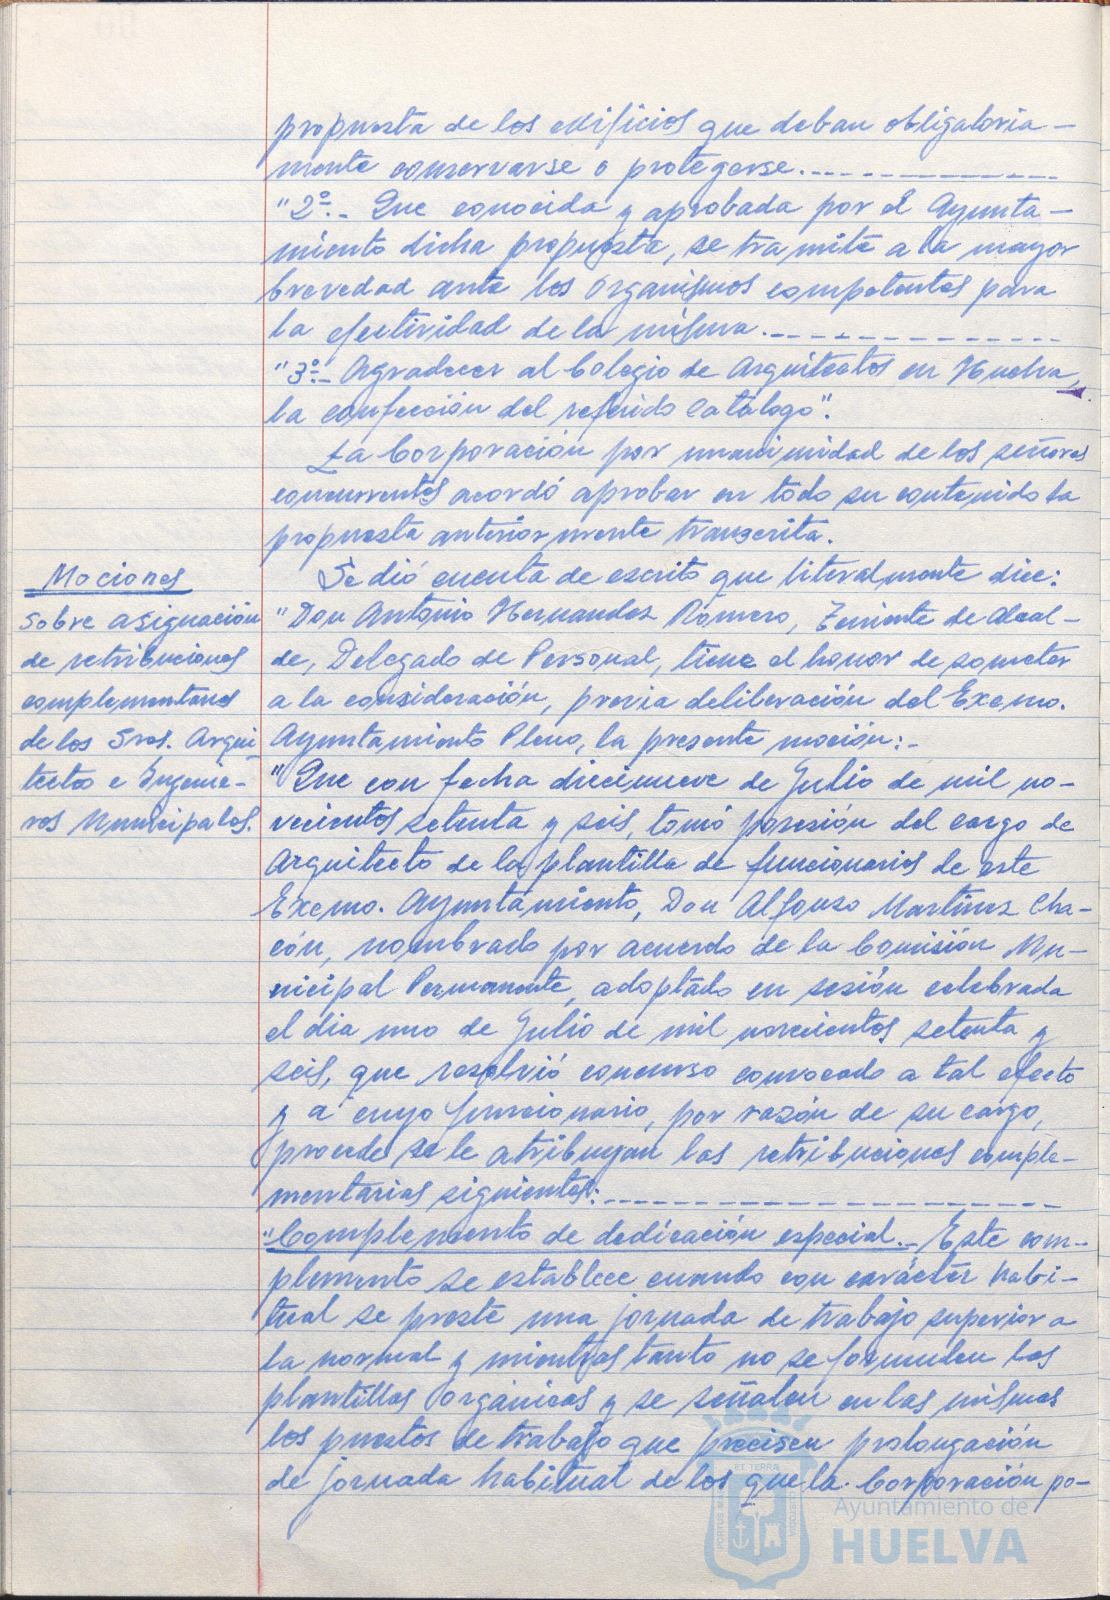 propuesta de los edificios que deban obligatoria-
mente conservarse o protegerse.-------------
"2º.- Que conocida y aprobada por el Ayunta-
miento dicha propuesta, se tramite a la mayor
brevedad ante los organismos competentes para
la efectividad de la misma.-------------
"3º.- Agradecer al Colegio de Arquitectos en Huelva,
la confección del referido Catálogo".
La Corporación por unanimidad de los señores
concurrentes acordó aprobar en todo su contenido la
propuesta anteriormente transcrita.
Mociones
Sobre asignación
de retribuciones
complementarias
de los Sres. Arqui-
tectos e Ingenie-
ros Municipales.
Se dió cuenta de escrito que literalmente dice:
"Don Antonio Hernandez Romero, Teniente de Alcal-
de, Delegado de Personal, tiene el honor de someter
a la consideración, previa deliberación del Excmo.
Ayuntamiento Pleno, la presente moción:-
"Que con fecha diecinueve de Julio de mil no-
vecientos setenta y seis, tomó posesión del cargo de
Arquitecto de la plantilla de funcionarios de este
Excmo. Ayuntamiento, Don Alfonso Martínez Cha-
cón, nombrado por acuerdo de la Comisión Mu-
nicipal Permanente, adoptado en sesión celebrada
el dia uno de Julio de mil novecientos setenta y
seis, que resolvió concurso convocado a tal efecto
y a cuyo funcionario, por razón de su cargo,
procede se le atribuyan las retribuciones comple-
mentarias siguientes:-------------
"Complemento de dedicación especial.- Este com-
plemento se establece cuando con carácter habi-
tual se preste una jornada de trabajo superior a
la normal y mientras tanto no se formulen las
plantillas orgánicas y se señalen en las mismas
los puestos de trabajo que precisen prolongación
de jornada habitual de los que la Corporación po-
Ayuntamiento de
HUELVA